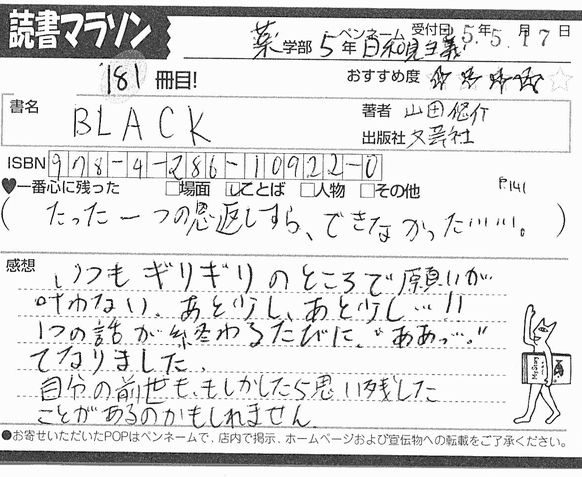 読書マラソン
薬学部 5年 ペンネーム 日和見主義 受付日 15年5月17日
181冊目!
おすすめ度 ★★★★☆
書名 BLACK
著者 山田悠介
出版社 文芸社
ISBN 978-4-286-10922-0
♥一番心に残った □場面 ☑ことば □人物 □その他 P141
(たった一つの恩返しすら、できなかった……。)
感想
いつもギリギリのところで願いが
叶わない。あと少し、あと少し…!!
1つの話が終わるたびに、"ああっ…。"
てなりました。
自分の前世も、もしかしたら思い残した
ことがあるのかもしれません。
●お寄せいただいたPOPはペンネームで、店内で掲示、ホームページおよび宣伝物への転載をご了承ください。